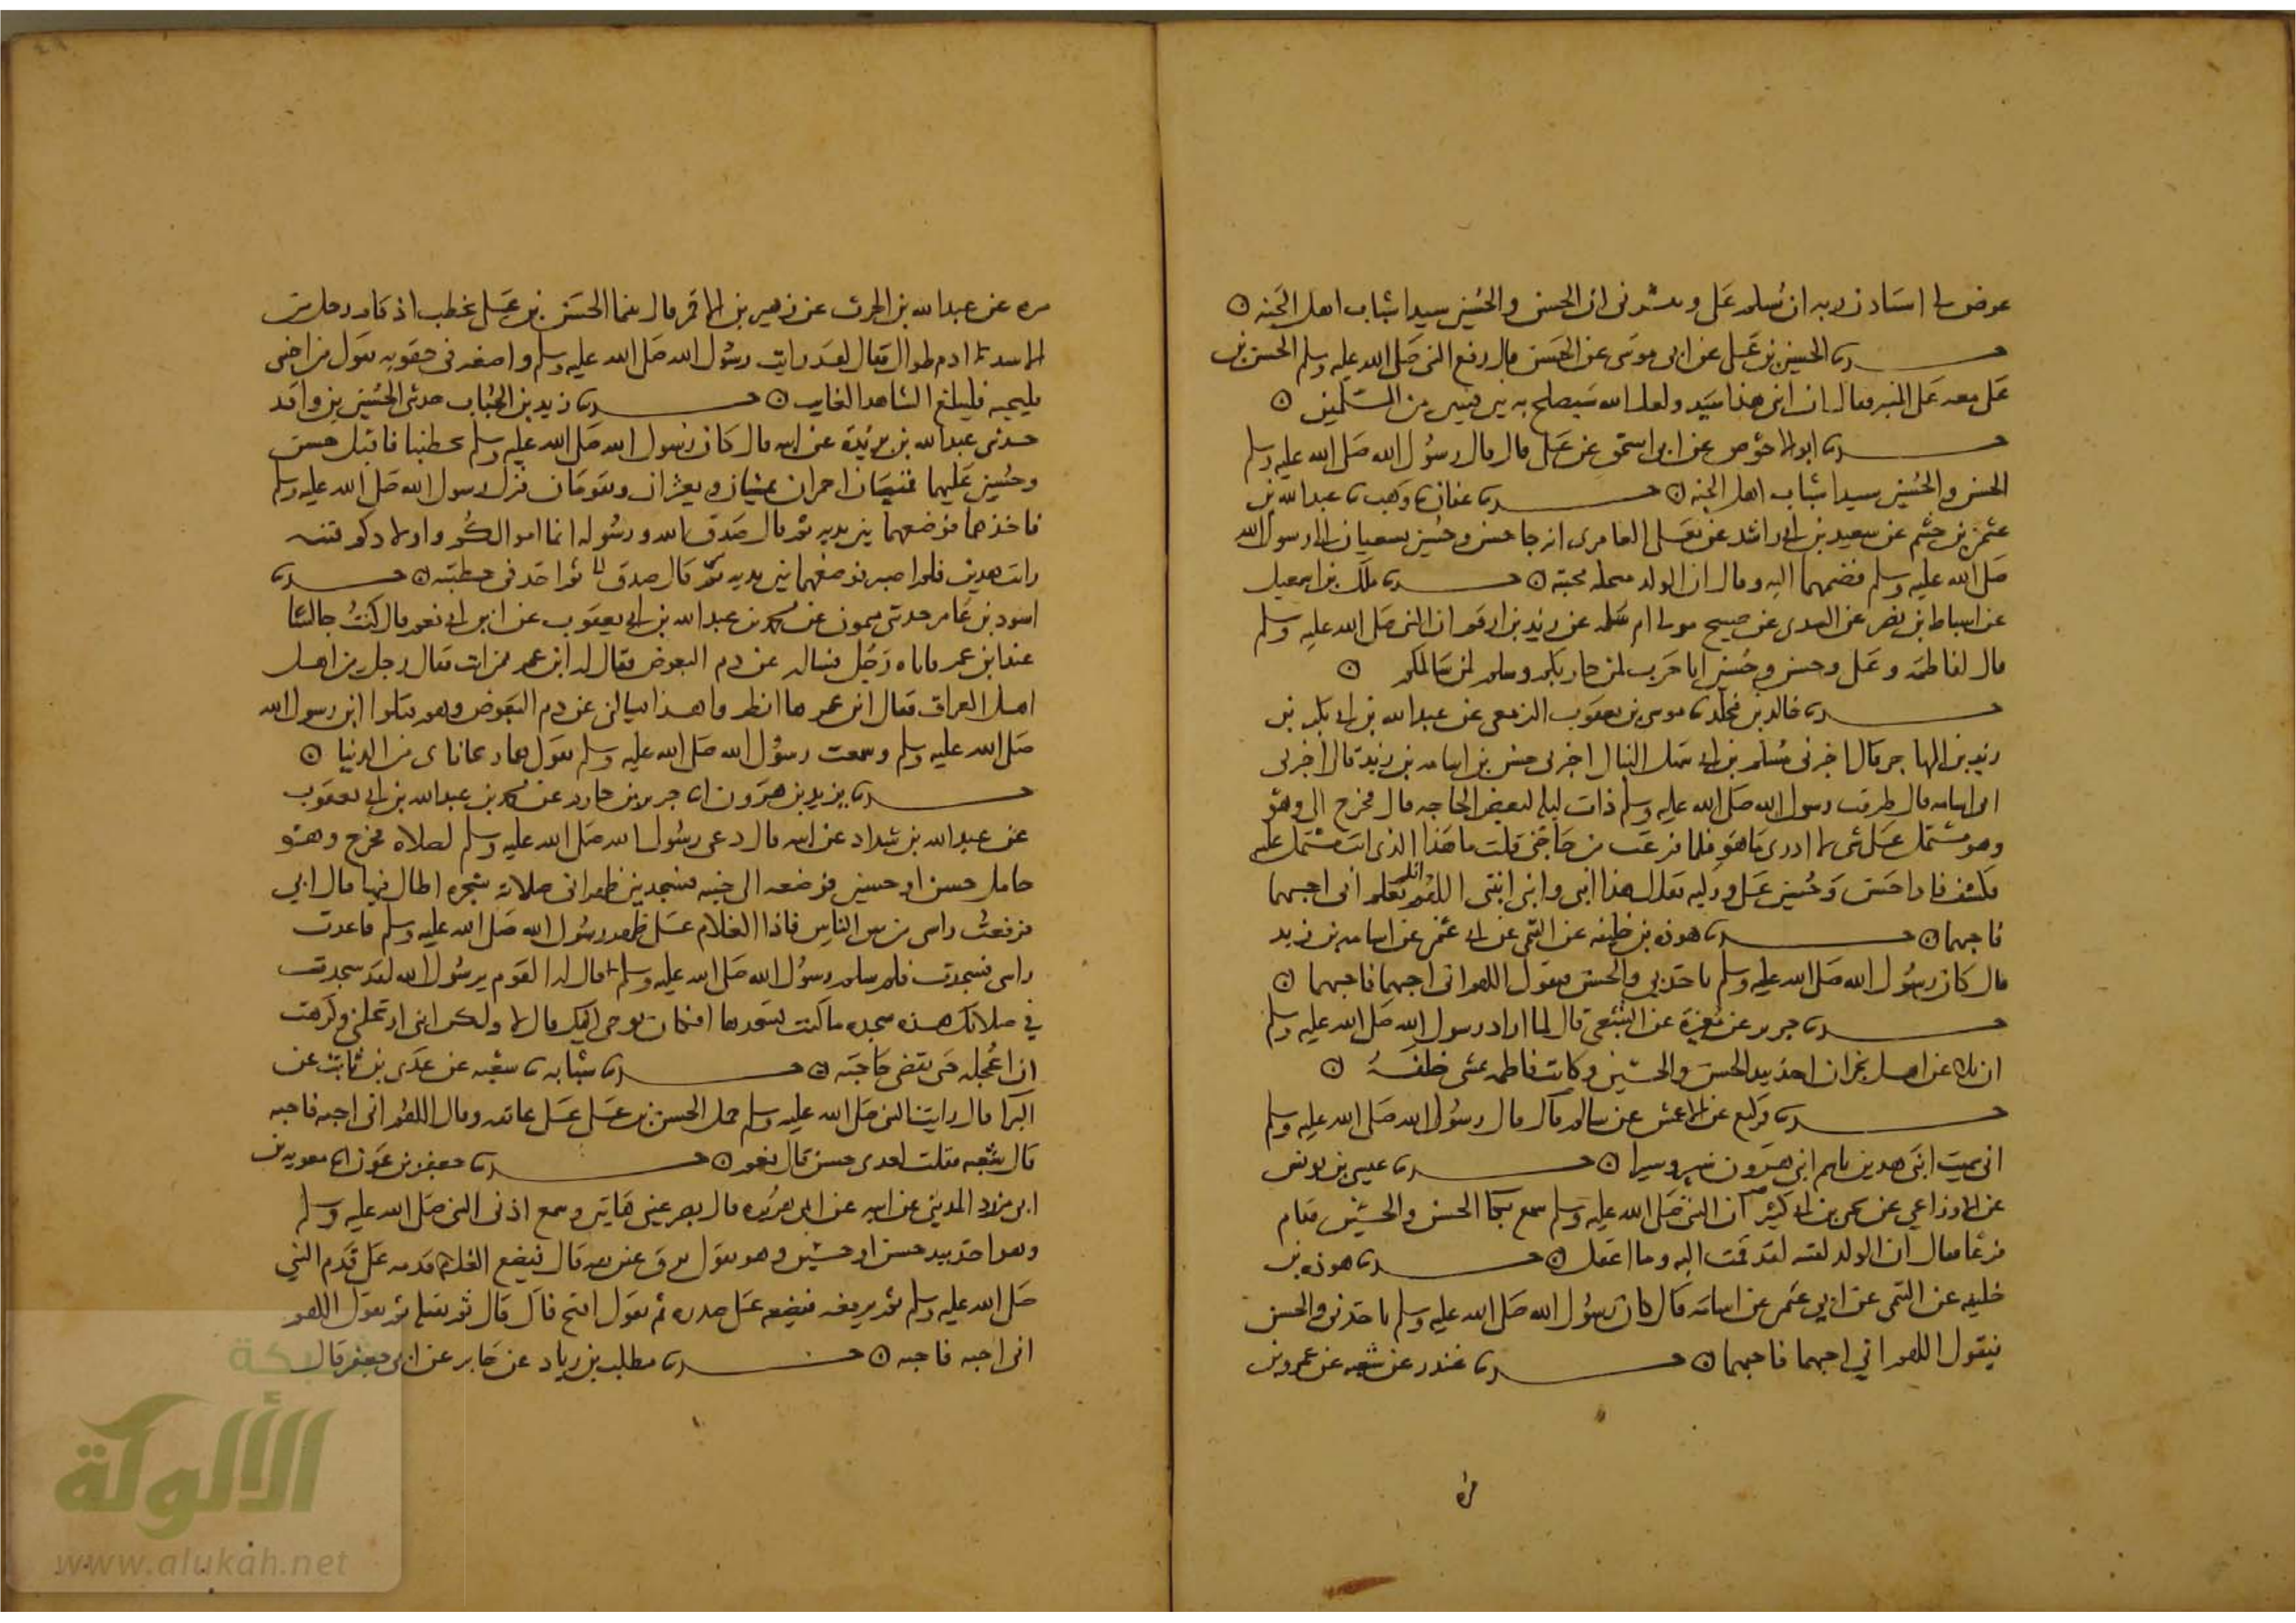 عرض لي استاذن ربه ان يسلم على ويبشرنى ان الحسن والحسين سيدا شباب اهل الجنه ه
حدثنا الحسين بن على عن ابى موسى عن الحسن قال رفع النبى صلى الله عليه وسلم الحسن بن
على معه على المنبر فقال ان ابنى هذا سيد ولعل الله سيصلح به بين فئتين من المسلمين ه
حدثنا ابو الاحوص عن ابى اسحق عن على قال قال رسول الله صلى الله عليه وسلم
الحسن والحسين سيدا شباب اهل الجنه ه حدثنا عفان نا وهيب نا عبدالله بن
عثمن بن خثيم عن سعيد بن ابى راشد عن يعلى العامرى انه جا حسن وحسين يسعيان الى رسول الله
صلى الله عليه وسلم فضمهما اليه وقال ان الولد مبخله مجبنه ه حدثنا ملك بن اسمعيل
عن اسباط بن نصر عن السدى عن صبيح مولى ام سلمه عن زيد بن ارقم ان النبى صلى الله عليه وسلم
قال لفاطمه وعلى وحسن وحسين انا حرب لمن حاربكم وسلم لمن سالمكم ه
حدثنا خالد بن مخلد نا موسى بن يعقوب الزمعى عن عبدالله بن ابى بكر بن
زيد بن المهاجر قال اخبرنى مسلم بن ابى سهل النبال اخبرنى حسن بن اسامه بن زيد قال اخبرنى
ابى اسامه قال طرقت رسول الله صلى الله عليه وسلم ذات ليله لبعض الحاجه قال فخرج الى وهو
وهو مشتمل على شى لا ادرى ما هو فلما فرغت من حاجتى قلت ما هذا الذى انت مشتمل عليه
فكشف فاذا حسن وحسين على وركيه فقال هذا ابنى وابنى ابنتى اللهم انك تعلم انى احبهما
فاحبهما ه حدثنا هوذه بن خليفه عن التيمى عن ابى عثمن عن اسامه بن زيد
قال كان رسول الله صلى الله عليه وسلم ياخذنى والحسن فيقول اللهم انى احبهما فاحبهما ه
حدثنا جرير عن مغيرة عن الشعبى قال لما اراد رسول الله صلى الله عليه وسلم
ان يلاعن اهل نجران اخذ بيد الحسن والحسين وكانت فاطمه تمشى خلفه ه
حدثنا وكيع عن الاعمش عن سالم قال قال رسول الله صلى الله عليه وسلم
انى سميت ابنى هذين باسم ابنى هرون شبر وشبيرا ه حدثنا عيسى بن يونس
عن الاوزاعى عن يحيى بن ابى كثير ان النبى صلى الله عليه وسلم سمع بكا الحسن والحسين فقام
فزعا فقال ان الولد لفتنه لقد قمت اليه وما اعقل ه حدثنا هوذه بن
خليفه عن التيمى عن ابى عثمن عن اسامه قال كان رسول الله صلى الله عليه وسلم ياخذنى والحسن
فيقول اللهم انى احبهما فاحبهما ه حدثنا غندر عن شعبه عن عمرو بن
مره
مره عن عبد الله بن الحرث عن زهير بن الاقمر قال بينما الحسن بن على يخطب اذ قام رجل من
الاسد ادم طوال فقال لقد رايت رسول الله صلى الله عليه وسلم واضعه فى حقويه يقول من احبنى
فليحبه فليبلغ الشاهد الغايب ه حدثنا زيد بن الحباب حدثنى الحسين بن واقد
حدثنى عبد الله بن بريدة عن ابيه قال كان رسول الله صلى الله عليه وسلم يخطبنا فاقبل حسن
وحسين عليهما قميصان احمران يمشيان ويعثران ويقومان فنزل رسول الله صلى الله عليه وسلم
فاخذهما فوضعهما بين يديه ثم قال صدق الله ورسوله انما اموالكم واولادكم فتنه
رايت هذين فلم اصبر ثم اخذ فى خطبته ه حدثنا
اسود بن عامر حدثنى ميمون عن محمد بن عبد الله بن ابى يعقوب عن ابن ابى نعم قال كنت جالسا
عند ابن عمر فاتاه رجل فساله عن دم البعوض فقال له ابن عمر ممن انت فقال رجل من اهل
اهل العراق فقال ابن عمر ها انظروا هذا يسالنى عن دم البعوض وهم قتلوا ابن رسول الله
صلى الله عليه وسلم وسمعت رسول الله صلى الله عليه وسلم يقول هما ريحانتاى من الدنيا ه
حدثنا يزيد بن هرون انا جرير بن حازم عن محمد بن عبد الله بن ابى يعقوب
عن عبد الله بن شداد عن ابيه قال دعى رسول الله صلى الله عليه وسلم لصلاه فخرج وهو
حامل حسن او حسين فوضعه الى جنبه فسجد بين ظهرانى صلاته سجده اطال فيها قال ابى
فرفعت راسى من بين الناس فاذا الغلام على ظهر رسول الله صلى الله عليه وسلم فاعدت
راسى فسجدت فلما سلم رسول الله صلى الله عليه وسلم قال له القوم يرسول الله لقد سجدت
فى صلاتك هذه سجده ما كنت تسجدها افكان يوحى اليك قال لا ولكن ابنى ارتحلنى وكرهت
ان اعجله حتى يقضى حاجته ه حدثنا شبابه نا شعبه عن عدى بن ثابت عن
البرا قال رايت النبى صلى الله عليه وسلم حمل الحسن بن على على عاتقه وقال اللهم انى احبه فاحبه
قال شعبه فقلت لعدى حسن قال نعم ه حدثنا جعفر بن عون انا معويه بن
ابى مزرد المدينى عن ابيه عن ابى هريره قال بصر عينى هاتين وسمع اذنى النبى صلى الله عليه وسلم
وهو اخذ بيد حسن او حسين وهو يقول ترق عين بقه قال فيضع الغلام قدمه على قدم النبى
صلى الله عليه وسلم ثم يرفعه فيضعه على صدره ثم يقول افتح فاك قال ثم يقبله ثم يقول اللهم
انى احبه فاحبه ه حدثنا مطلب بن زياد عن جابر عن ابى جعفر قال
شبكة
الألوكة
www.alukah.net